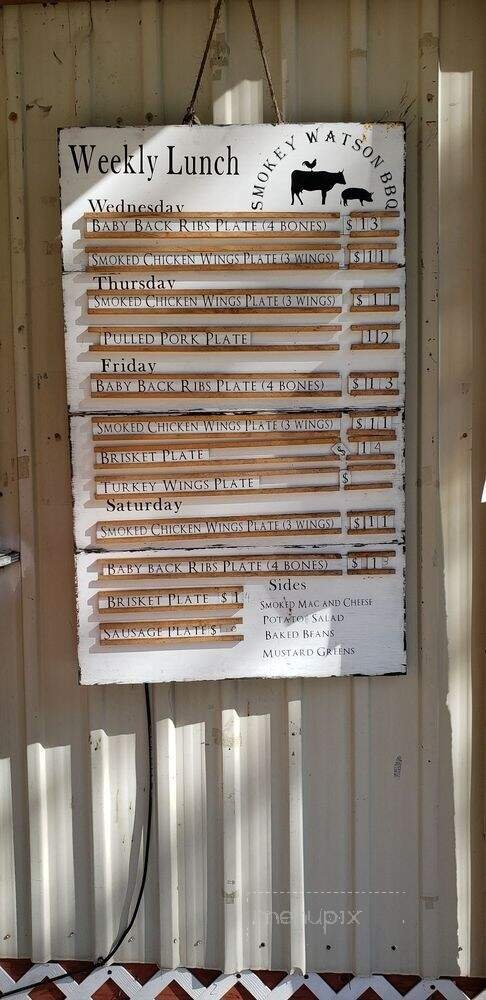 Weekly Lunch
SMOKEY WATSON BBQ
Wednesday
BABY BACK RIBS PLATE (4 BONES) $13
SMOKED CHICKEN WINGS PLATE (3 WINGS) $11
Thursday
SMOKED CHICKEN WINGS PLATE (3 WINGS) $11
PULLED PORK PLATE 12
Friday
BABY BACK RIBS PLATE (4 BONES) $13
SMOKED CHICKEN WINGS PLATE (3 WINGS) $11
BRISKET PLATE $14
TURKEY WINGS PLATE $
Saturday
SMOKED CHICKEN WINGS PLATE (3 WINGS) $11
BABY BACK RIBS PLATE (4 BONES) $13
BRISKET PLATE $14
SAUSAGE PLATE $
Sides
SMOKED MAC AND CHEESE
POTATOE SALAD
BAKED BEANS
MUSTARD GREENS
menupix